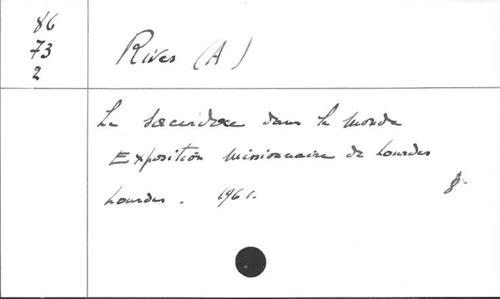 86
73
2
Rives (A)
Le sacerdoce dans le monde
Exposition missionnaire de Lourdes
Lourdes. 1961.